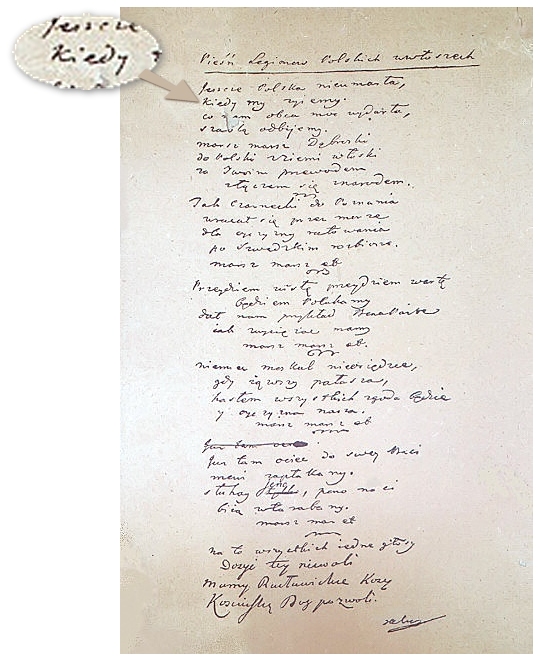 Jescze
Kiedy
Pieśń Legionow Polskich wewłoszech
Jescze Polska nieumarła,
kiedy my zyiemy.
co nam obca moc wydarła,
szablą odbijemy.
marsz marsz Dąbroski
do Polski zziemi włoski
za Twoim przewodem
złączem się znarodem.
Jak Czarnecki do Poznania
wracał się przez morze
dla oyczyzny ratowania
po Szwedzkim rozbiorze.
marsz marsz etc
Przeydziem wisłę przeydziem wartę
będziem Polakamy
dał nam przykład Bonaparte
iak zwycięzac mamy
marsz marsz etc.
niemiec moskal nieosiędzie,
gdy iąwszy pałasza,
hasłem wszystkich zgoda będzie
y oyczyzna nasza.
marsz marsz etc
Juz tam ociec
Juz tam ociec do swey Basi
mowi zapłakany.
słuchay jeno, pono nasi
biią wtarabany.
marsz mar etc
na to wszystkich iedne głosy
Dosyć tey niewoli
mamy Racławickie Kosy
Kosciuszkę Bog pozwoli.